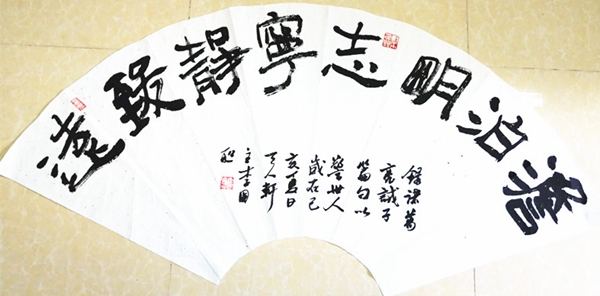 澹泊明志寧靜致遠
錄諸葛
亮誡子
篇句以
警世人
歲在己
亥夏日
天人軒
主李國